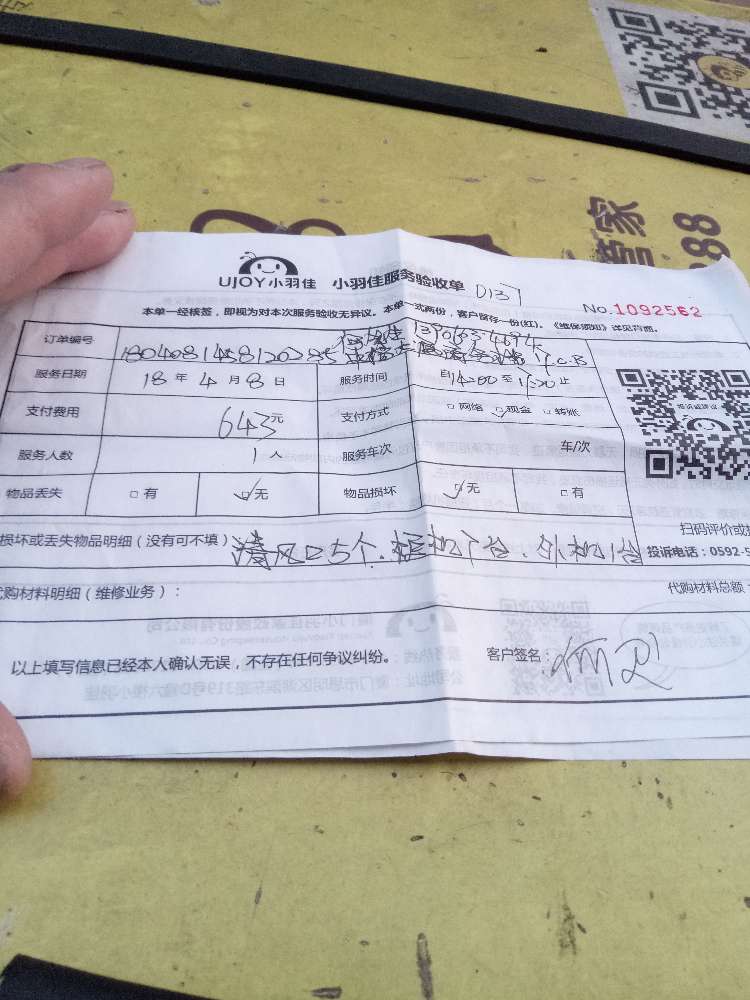 管家
688
UJOY小羽佳 小羽佳服务验收单 D137
No.1092562
本单一经核签,即视为对本次服务验收无异议。本单一式两份,客户留存一份(红)。《维保须知》详见背面。
订单编号 1804081458120285
服务日期 18年4月8日 服务时间 自14:00至17:20止
支付费用 643元 支付方式 □网络 □现金 □转账
服务人数 1人 服务车次 车/次
物品丢失 □有 □无 物品损坏 □无 □有
损坏或丢失物品明细(没有可不填) 清风口5个.柜机1台.外机1台
扫码评价或
投诉电话:0592-5
代购材料明细(维修业务): 代购材料总额
以上填写信息已经本人确认无误,不存在任何争议纠纷。 客户签名: